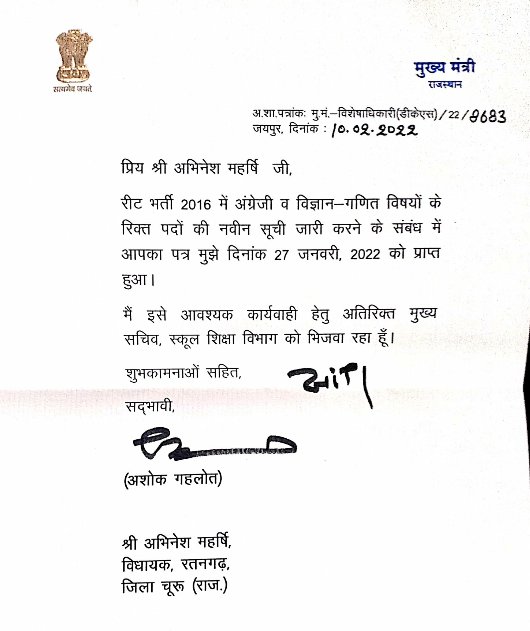 सत्यमेव जयते
मुख्य मंत्री
राजस्थान
अ.शा.पत्रांकः मु.मं.–विशेषाधिकारी(डीकेएस)/22/8683
जयपुर, दिनांक : 10.02.2022
प्रिय श्री अभिनेश महर्षि जी,
रीट भर्ती 2016 में अंग्रेजी व विज्ञान–गणित विषयों के
रिक्त पदों की नवीन सूची जारी करने के संबंध में
आपका पत्र मुझे दिनांक 27 जनवरी, 2022 को प्राप्त
हुआ।
मैं इसे आवश्यक कार्यवाही हेतु अतिरिक्त मुख्य
सचिव, स्कूल शिक्षा विभाग को भिजवा रहा हूँ।
शुभकामनाओं सहित,
सद्भावी,
(अशोक गहलोत)
श्री अभिनेश महर्षि,
विधायक, रतनगढ़,
जिला चूरू (राज.)